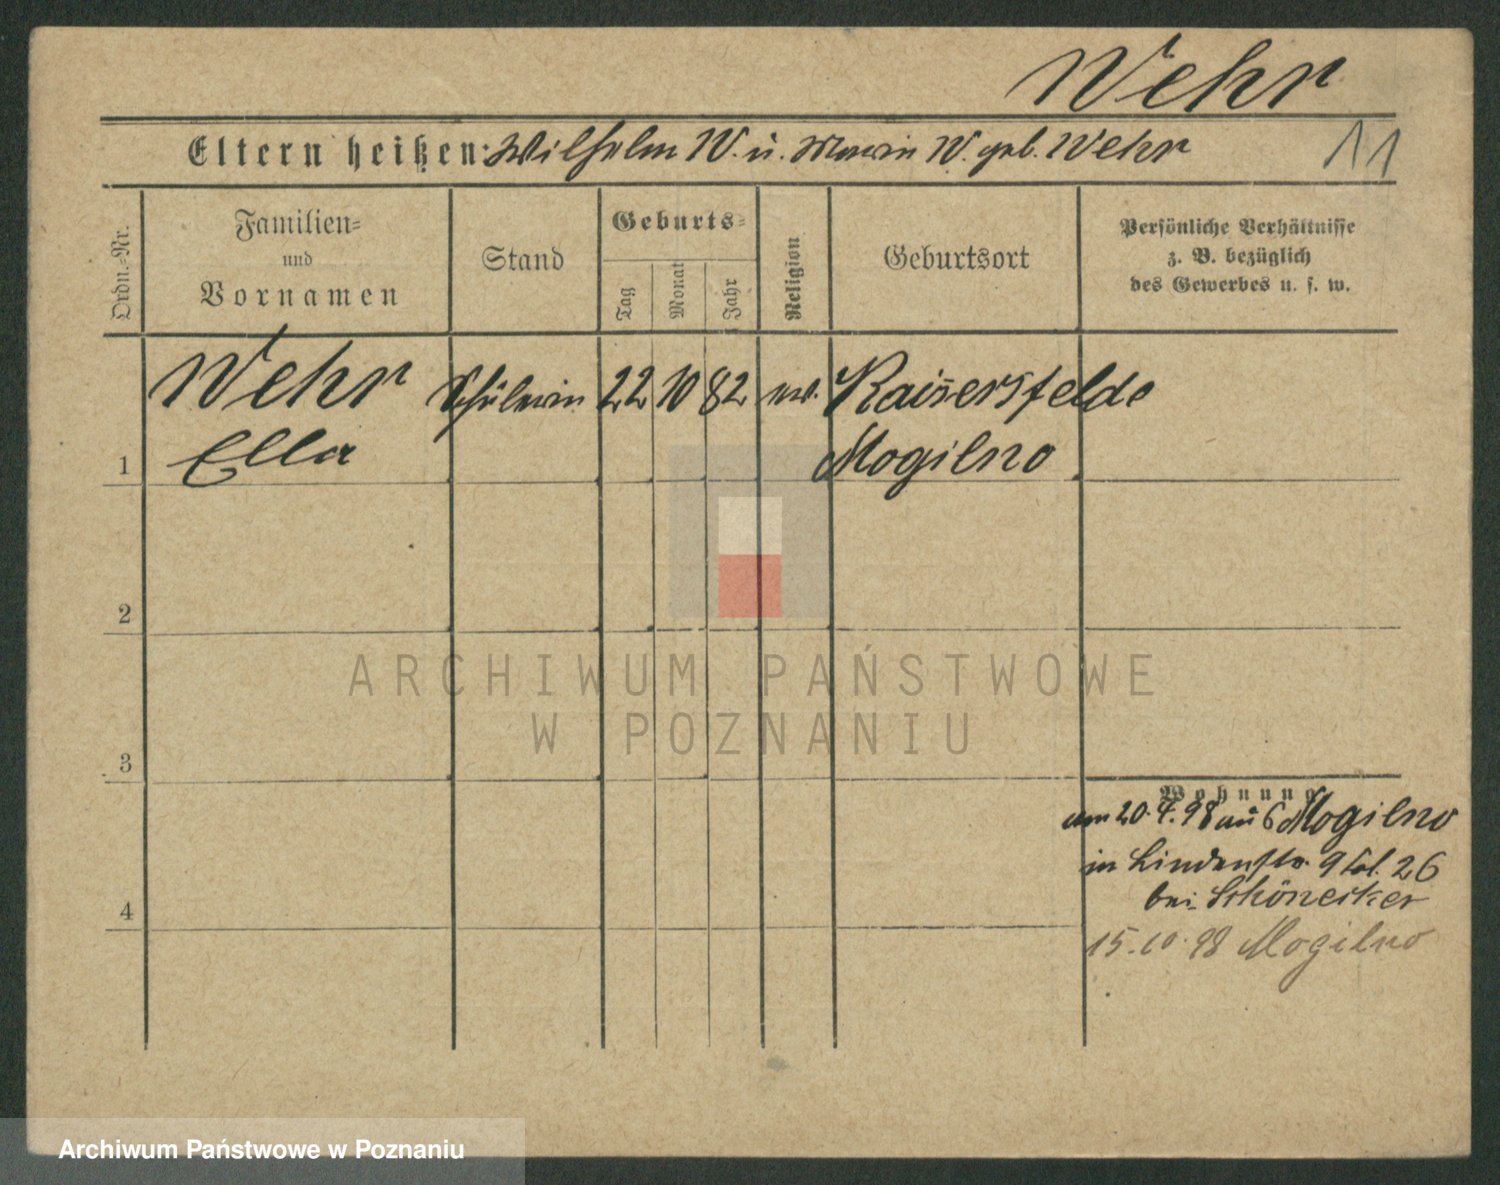 Wehr
Eltern heißen: Wilhelm W. u. Marie W. geb. Wehr
11
Ordn.-Nr.
Familien-
und
Vornamen
Stand
Geburts-
Tag
Monat
Jahr
Religion
Geburtsort
Persönliche Verhältnisse
z. B. bezüglich
des Gewerbes u. s. w.
Wehr Schülerin 22 10 82 ev. Kaisersfelde
1 Ella Mogilno
2
ARCHIWUM PAŃSTWOWE
W POZNANIU
3
Wohnung
am 20. 4. 98 aus Mogilno
in Lindenstr. 9 26
bei Schönecker
4
15.10.98 Mogilno
Archiwum Państwowe w Poznaniu